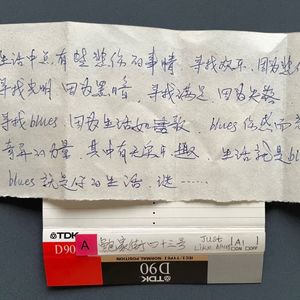 生活中总有些悲伤的事情 寻找欢乐 因为悲伤
寻找光明 因为黑暗 寻找满足 因为失落
寻找blues 因为生活如歌 blues
奇异的力量 其中有无穷乐趣 生活就是b
blues就是你的生活 谜……
TDK
D90 A 鲍家街四十三号 Just Like Blues [A]
TDK
D90
IEC I / TYPE I NORMAL POSITION